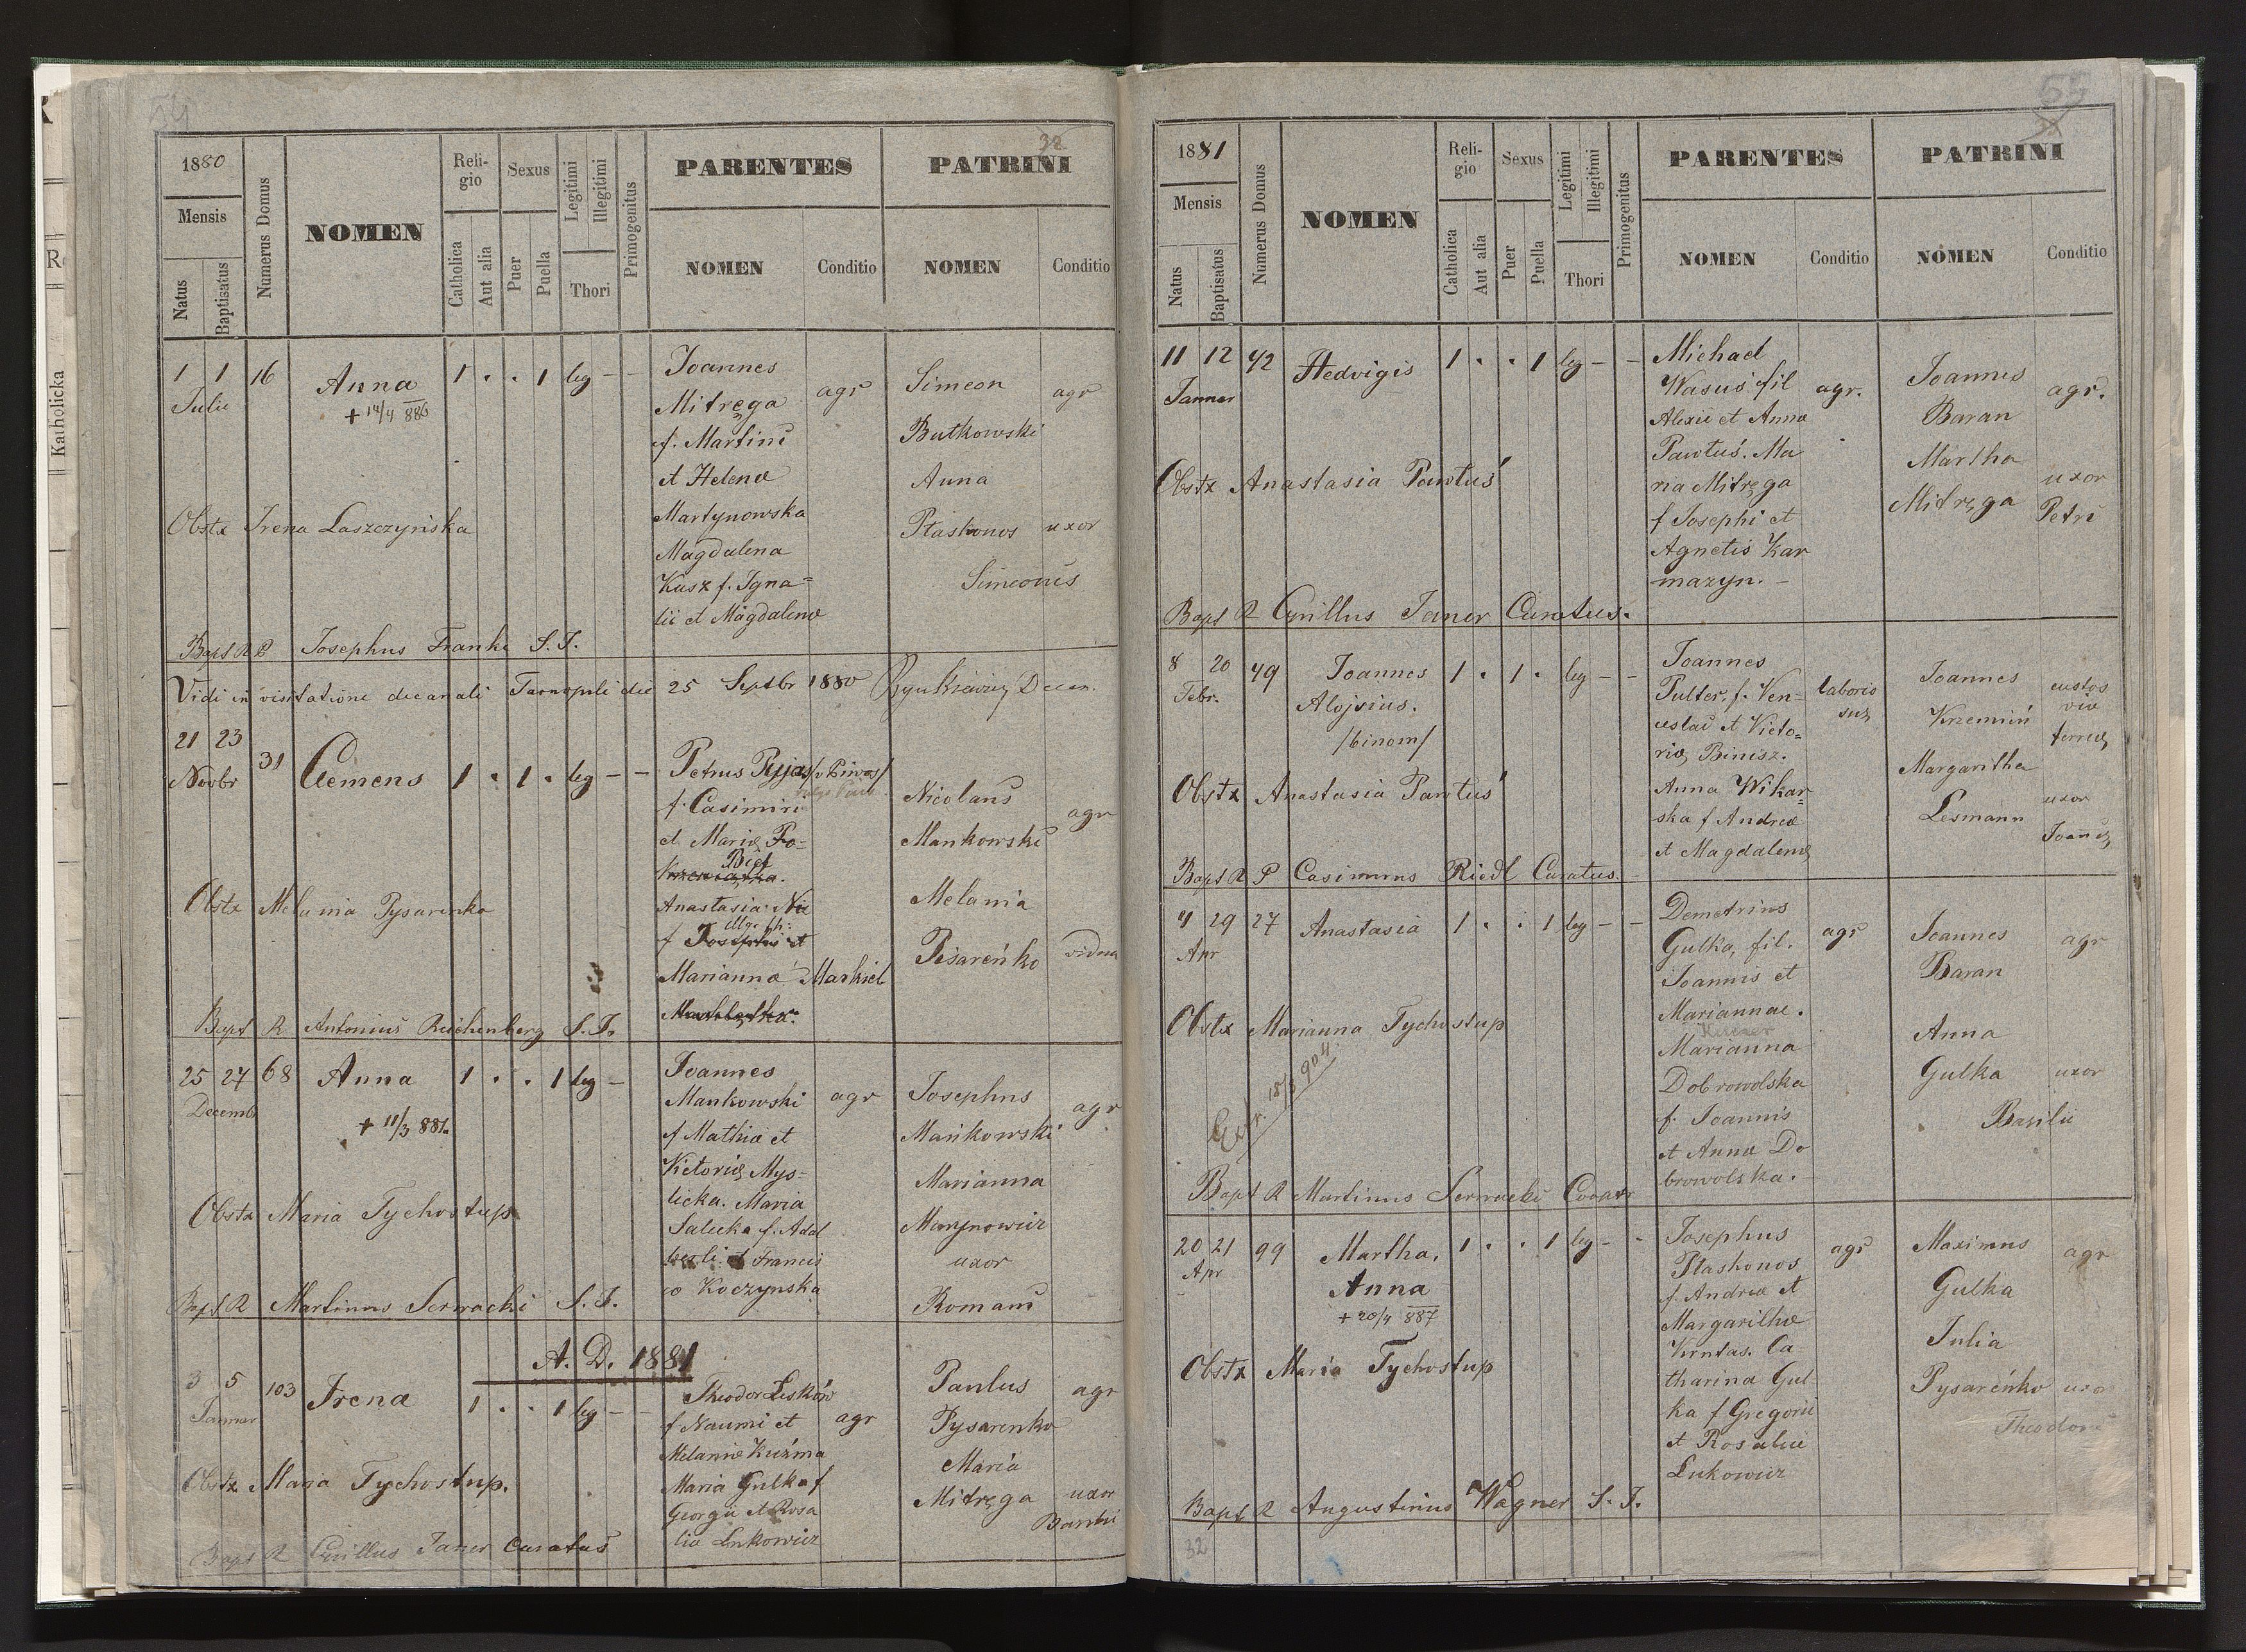 54
1880
Mensis
Natus
Baptisatus
Numerus Domus
NOMEN
Reli-
gio
Catholica
Aut alia
Sexus
Puer
Puella
Legitimi
Illegitimi
Thori
Primogenitus
PARENTES
NOMEN
Conditio
PATRINI
NOMEN
Conditio
1 1 16 Anna 1 . . 1 leg - -
Julii
+ 14/4 886
Joannes
Mitręga agr
f. Martini
et Helenæ
Martynowska
Magdalena
Kusz f. Igna=
tii et Magdalenæ
Simeon agr
Butkowski
Anna
Ptaskonos uxor
Simeonis
Obstx Irena Laszczyńska
Bapt R P Josephus Franki S. J.
Vidi in visitatione decanali Tarnopoli die 25 Septbr 1880 Decan.
21 23 31 Clemens 1 . 1 . leg - -
Novbr
Petrus
f. Casimiri
et Mariæ
Anastasia
f Josephi et
Marianna Markiel
Nicolaus agr
Mankowski
Melania
Pisareńko vidua
Obstx Melania Pysarenko
Bapt R Antonius Reichenberg S. J.
25 27 68 Anna 1 . . 1 leg -
Decemb
+ 11/3 881.
Joannes
Mankowski agr
f Mathiæ et
Victoriæ Mys-
licka. Maria
Salicka f. Adal
berti et Francis
cæ Koczynska
Josephus agr
Mańkowski
Marianna
Marynowicz
uxor
Romani
Obstx Maria Tychostup
Bapt R Martinus Serwacki S. J.
A. D. 1881
3 5 103 Irena 1 . . 1 leg - -
Januar
Theodor Leśków
f Naumi et agr
Melaniæ Kuźma
Maria Gulka f
Georgii et Rosa
lia Lukowicz
Paulus agr
Pysarenko
Maria
Mitręga uxor
Obstx Maria Tychostup.
Bapt R Cyrillus Janer Curatus
55
1881
Mensis
Natus
Baptisatus
Numerus Domus
NOMEN
Reli-
gio
Catholica
Aut alia
Sexus
Puer
Puella
Legitimi
Illegitimi
Thori
Primogenitus
PARENTES
NOMEN
Conditio
PATRINI
NOMEN
Conditio
11 12 42 Hedvigis 1 . . 1 leg - -
Januar
Michael
Wasuś fil agr.
Alexii et Annæ
Pawtuś. Ma
ria Mitręga
f Josephi et
Agnetis Kar
mazyn. -
Joannes agr.
Baran
Martha uxor
Mitręga Petri
Obstx Anastasia Pawtuś
Bapt R Cyrillus Janer Curatus.
8 20 49 Joannes 1 . 1 . leg - -
Febr. Alojsius.
/binom/
Joannes
Pulter, f. Ven-
ceslai et Victo=
riæ Binisz.
Anna Wikar=
ska f Andreæ
et Magdalenæ
Joannes custos
Krzemiń viæ
ferreæ
Margaritha
Lesmann uxor
Joannis
Obstx Anastasia Pawtuś
Bapt R P Casimirus Riedl Curatus.
4 29 27 Anastasia 1 . . 1 leg - -
Apr
Demetrius
Gulka, fil. agr
Joannis et
Mariannae.
Marianna
Dobrowolska
f. Joannis
et Annæ Do
browolska. -
Joannes agr
Baran
Anna
Gulka uxor
Basilii
Obstx Marianna Tychostup
Extr. 15/3 904.
Bapt R Martinus Serwacki Cooptr
20 21 99 Martha, 1 . . 1 leg - -
Apr Anna
+ 20/4 887
Josephus
Ptaskonos agr
f. Andreæ et
Margarithæ
Ca
tharina Gul
ka f Gregorii
et Rosaliæ
Lukowicz
Maximus agr
Gulka
Julia
Pysareńko uxor
Theodori
Obstx Maria Tychostup
Bapt R Augustinus Wagner S. J.
32
Katholicka